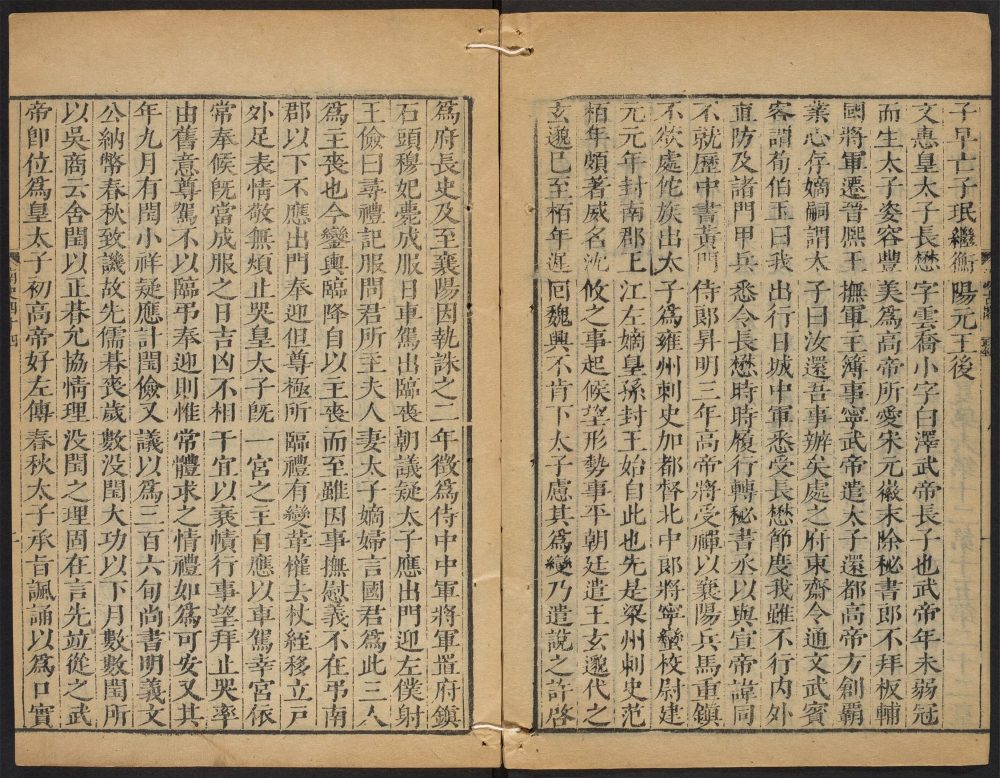 子早亡子珉繼衡陽元王後
文惠皇太子長懋字雲喬小字白澤武帝長子也武帝年未弱冠
而生太子姿容豐美爲高帝所愛宋元徽末除秘書郎不拜板輔
國將軍遷晉熙王撫軍主簿事寧武帝遣太子還都高帝方創霸
業心存嫡嗣謂太子曰汝還吾事辦矣處之府東齋令通文武賓
客謂荀伯玉曰我出行日城中軍悉受長懋節度我雖不行内外
直防及諸門甲兵悉令長懋時時履行轉秘書丞以與宣帝諱同
不就歷中書黃門侍郎昇明三年高帝將受禪以襄陽兵馬重鎮
不欲處佗族出太子爲雍州刺史加都督北中郎將寧蠻校尉建
元元年封南郡王江左嫡皇孫封王始自此也先是梁州刺史范
栢年頗著威名沈攸之事起候望形勢事平朝廷遣王玄邈代之
玄邈已至栢年遲回魏興不肯下太子慮其爲變乃遣說之許啓
爲府長史及至襄陽因執誅之二年徵爲侍中中軍將軍置府鎮
石頭穆妃薨成服日車駕出臨喪朝議疑太子應出門迎左僕射
王儉曰尋禮記服問君所主夫人妻太子嫡婦言國君爲此三人
爲主喪也今鑾輿臨降自以主喪而至雖因事撫慰義不在弔南
郡以下不應出門奉迎但尊極所臨禮有變革權去杖絰移立戶
外足表情敬無煩止哭皇太子旣一宮之主自應以車駕幸宮依
常奉候旣當成服之日吉凶不相干宜以衰幘行事望拜止哭率
由舊意尊駕不以臨弔奉迎則惟常體求之情禮如爲可安又其
年九月有閏小祥疑應計閏儉又議以爲三百六旬尚書明義文
公納幣春秋致譏故先儒朞喪歲數没閏大功以下月數數閏所
以吳商云舍閏以正朞允協情理没閏之理固在言先竝從之武
帝卽位爲皇太子初高帝好左傳春秋太子承旨諷誦以爲口實